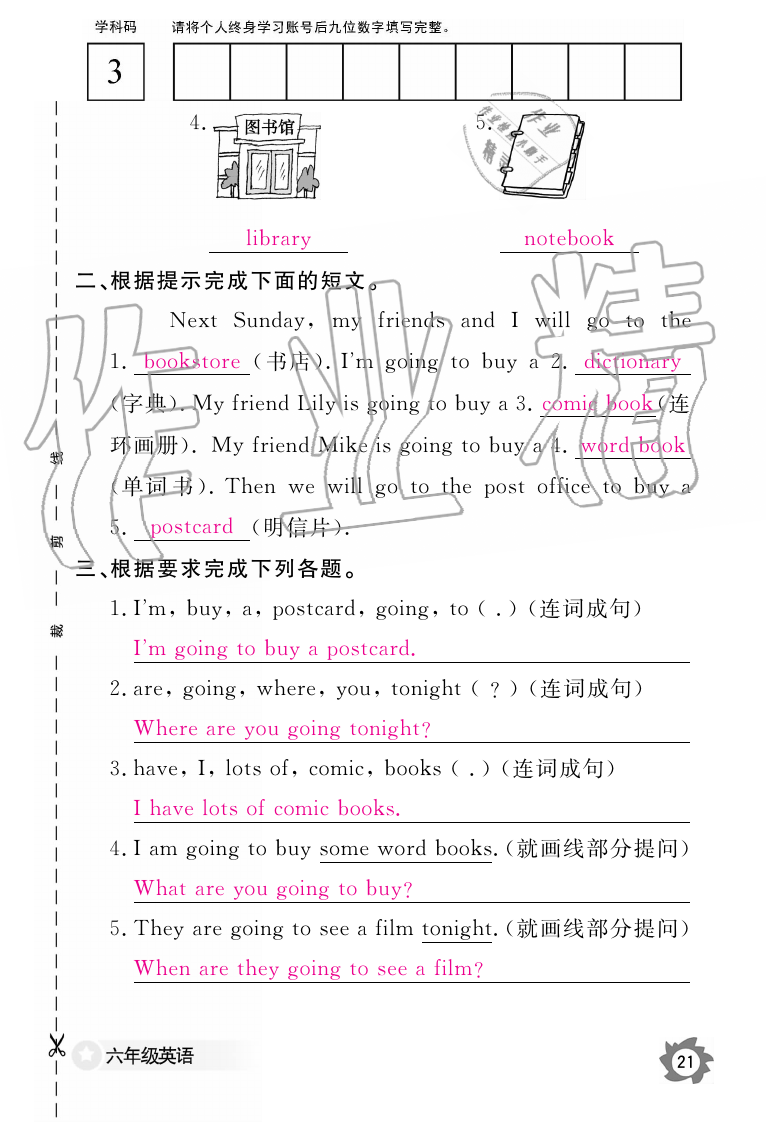 学科码 请将个人终身学习账号后九位数字填写完整。
3
4. 图书馆 5.
library notebook
二、根据提示完成下面的短文。
Next Sunday, my friends and I will go to the
1. bookstore (书店). I'm going to buy a 2. dictionary
(字典). My friend Lily is going to buy a 3. comic book (连
环画册). My friend Mike is going to buy a 4. word book
(单词书). Then we will go to the post office to buy a
5. postcard (明信片).
三、根据要求完成下列各题。
1. I'm, buy, a, postcard, going, to ( . ) (连词成句)
I'm going to buy a postcard.
2. are, going, where, you, tonight ( ? ) (连词成句)
Where are you going tonight?
3. have, I, lots of, comic, books ( . ) (连词成句)
I have lots of comic books.
4. I am going to buy some word books. (就画线部分提问)
What are you going to buy?
5. They are going to see a film tonight. (就画线部分提问)
When are they going to see a film?
裁 剪 线
六年级英语
21
作业精